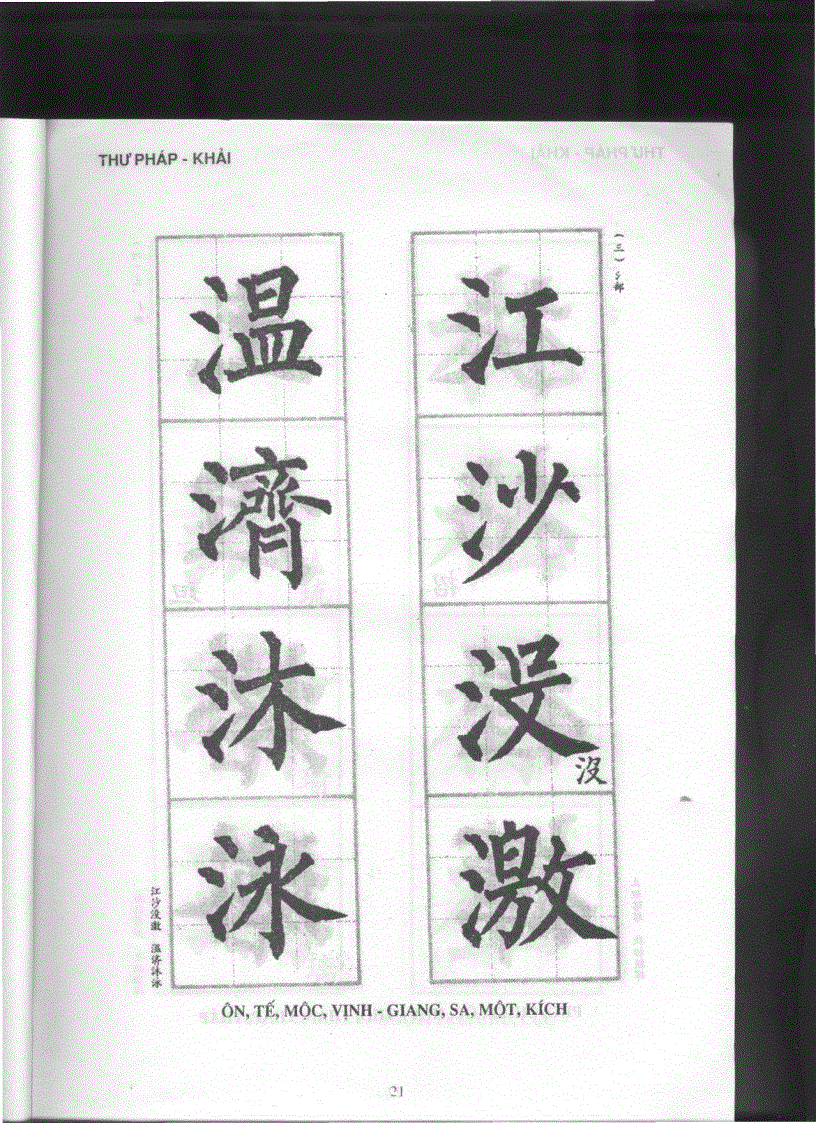 THƯ PHÁP - KHẢI
(三) 氵部
江
沙
没
沒
激
温
濟
沐
泳
江沙没激 温濟沐泳
ÔN, TẾ, MỘC, VỊNH - GIANG, SA, MỘT, KÍCH
21